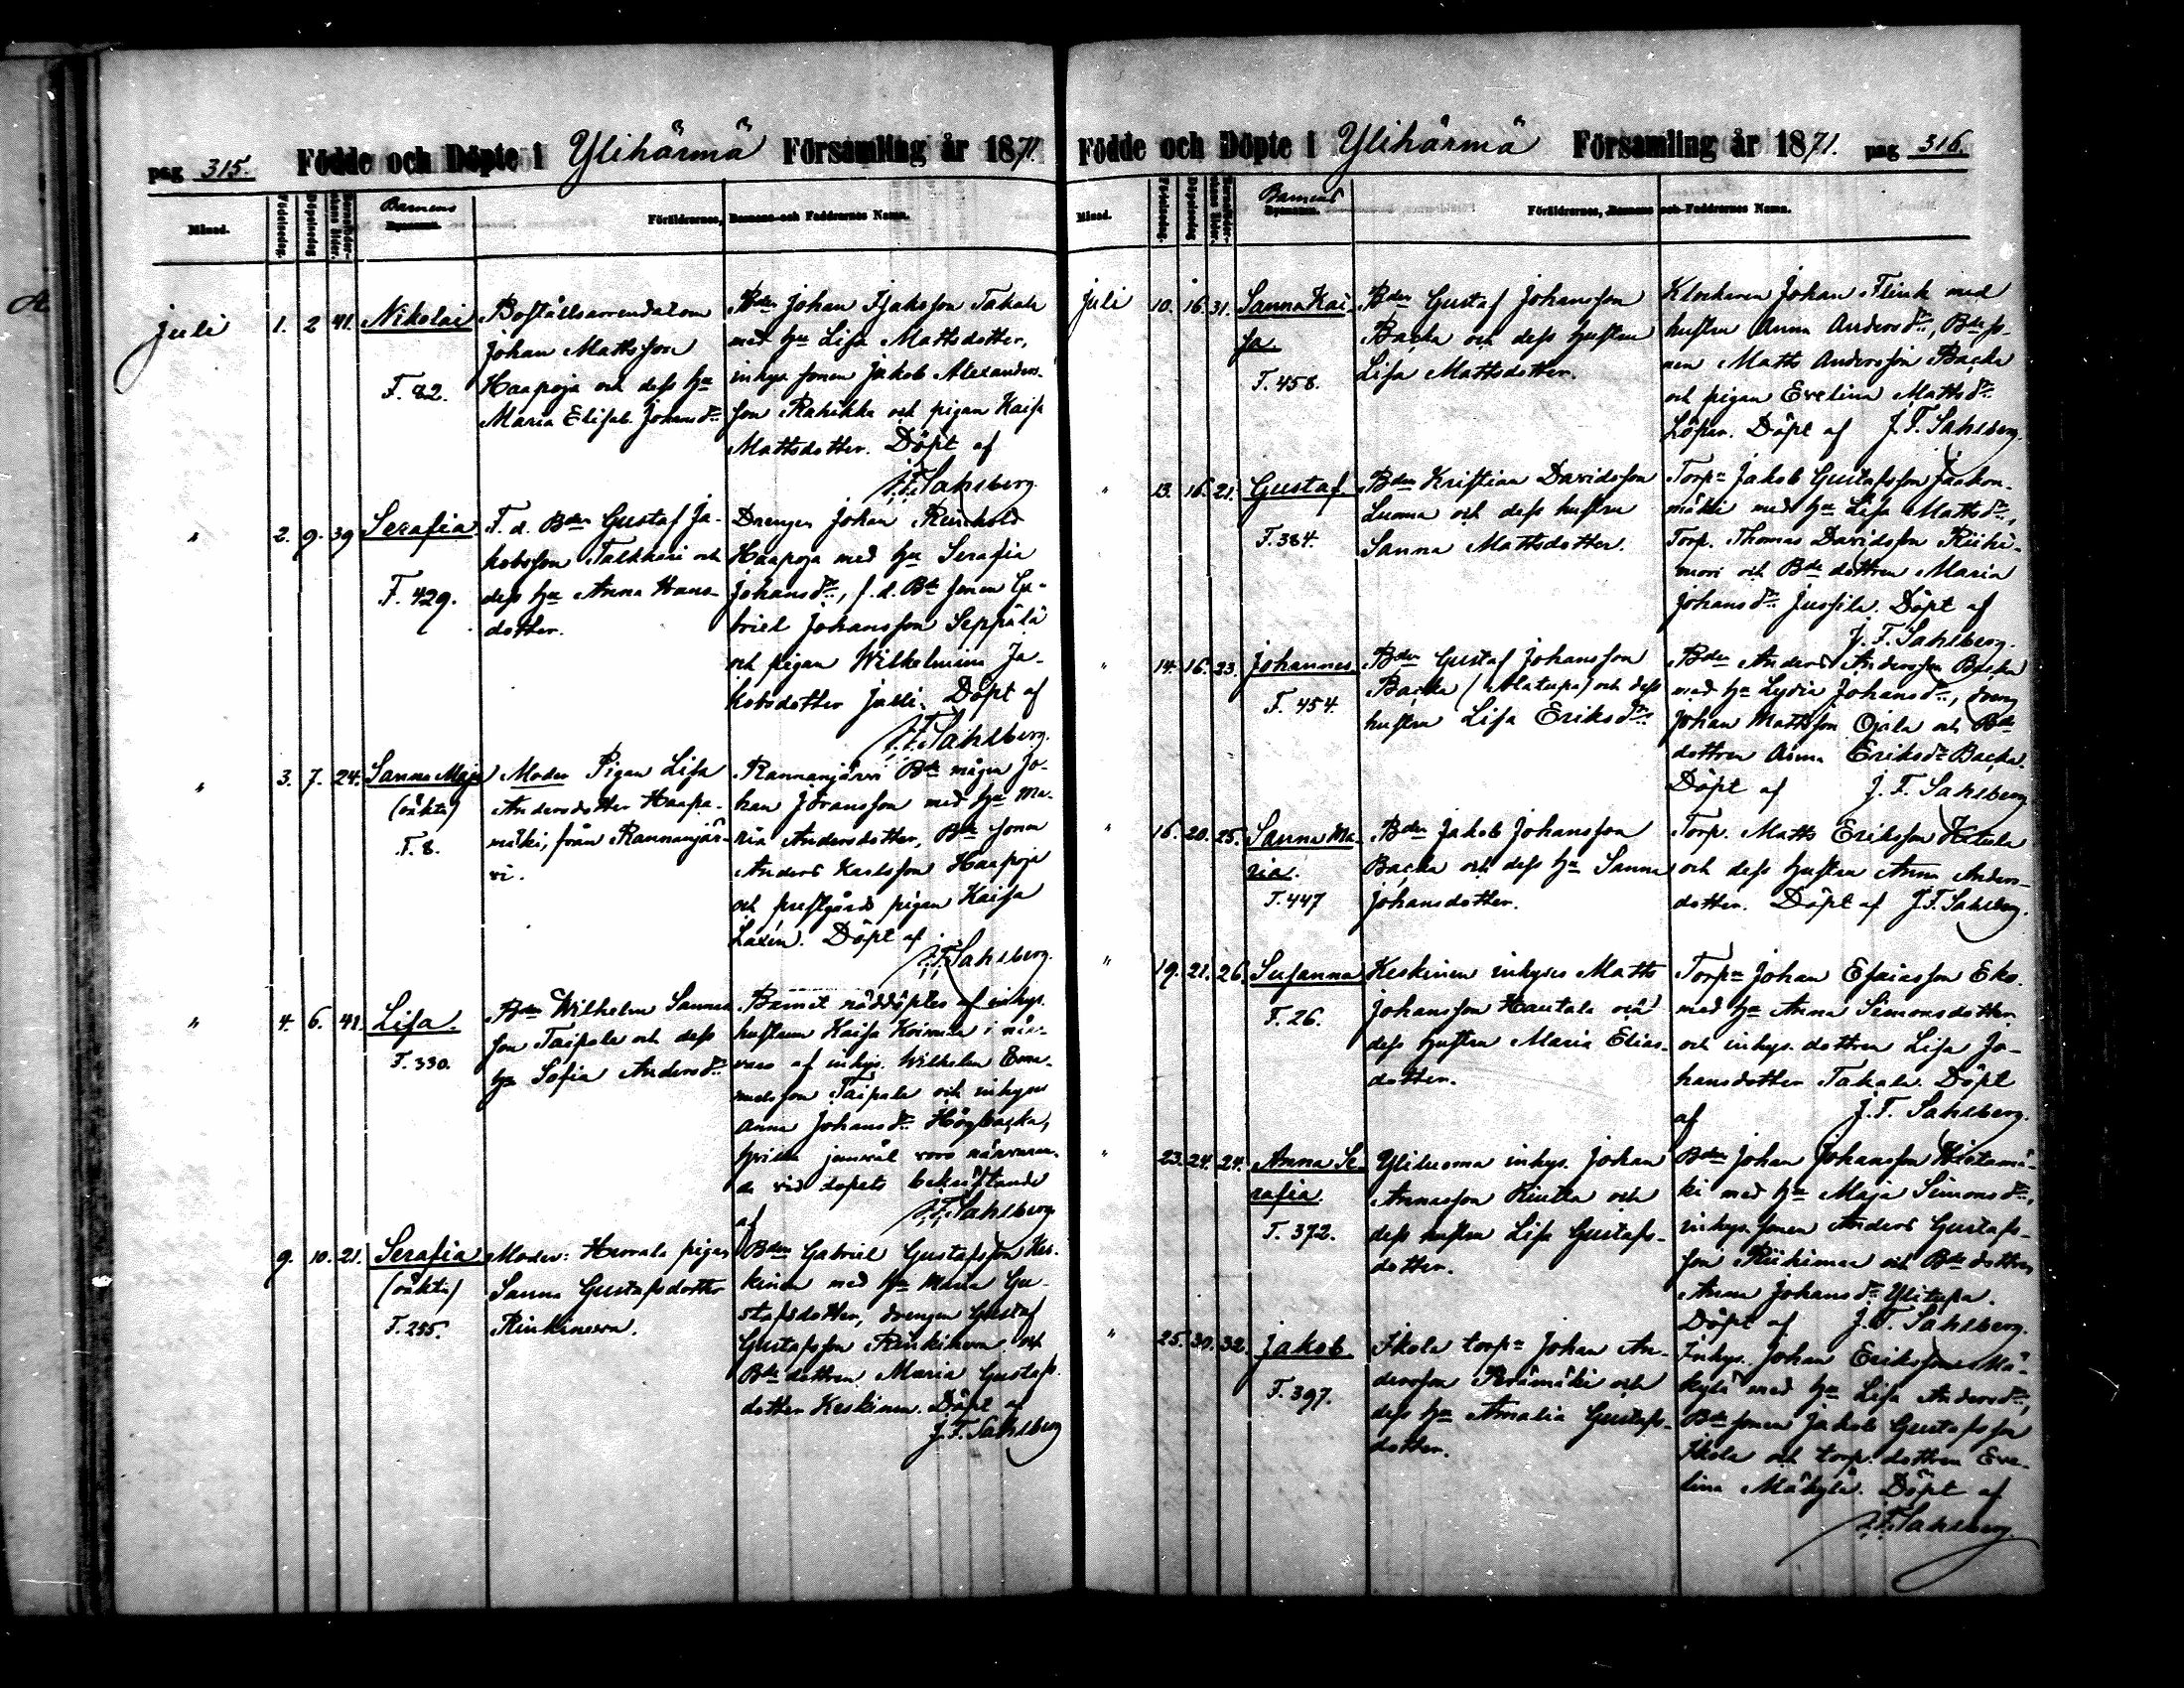 pag 315. Födde och Döpte i Ylihärmä Församling år 1871.
Månad. Födelsedag. Döpelsedag Barnens Föräldrarnes, Barnens och Faddrarnes Namn.
Juli 1. 2 41. Nikolai
F. 82.
Boställsarrendatorn
Johan Mattsson
Haapoja och dess hu
Maria Elisab. Johansdr
Bdn Johan Isaksson Takala
med hu Lisa Mattsdotter,
inhys sonen Jakob Alexanders-
son Rahikka och pigan Kaisa
Mattsdotter. Döpt af
J.F. Sahlberg.
" 2. 9. 39 Serafia
F. 429.
F. d. Bdn Gustaf Ja-
kobsson Talkkari och
dess hu Anna Hans-
dotter.
Drengen Johan Reinhold
Haapoja med hu Serafia
Johansdr, f.d. Bde sonen Ga-
briel Johansson Seppälä
och pigan Wilhelmina Ja-
kobsdotter Jalli. Döpt af
J.F. Sahlberg.
" 3. 7. 24. Sanna Maja
(oäkta)
F. 8.
Moder Pigan Lisa
Andersdotter Haapa-
mäki, från Rannanjär-
vi.
Rannanjärvi Bde mågen Jo-
han Johansson med hu Ma-
ria Andersdotter, Bde sonen
Anders Karlsson Haapoja
och prestgårds pigan Kaisa
Laxén. Döpt af
J.F. Sahlberg.
" 4. 6. 41. Lisa.
F. 330.
Bdn Wilhelm Samuels-
son Taipale och dess
hu Sofia Andersdr
Barnet nöddöptes af inhys.
hustrun Kaisa Koivula i när-
varo af inhys. Wilhelm Ema-
nuelsson Taipale och inhyses
Anna Johansdr Högbacka,
hvilka jemväl voro närvaran-
de vid dopets bekräftande
af J.F. Sahlberg.
9. 10. 21. Serafia
(oäkta)
F. 255.
Moder: Heroala pigan
Sanna Gustafsdotter
Rinkineva.
Bdn Gabriel Gustafsson Kes-
kinen med hu Maria Gu-
stafsdotter, drengen Gustaf
Gustafsson Rinkineva och
Bde dottren Maria Gustafs-
dotter Keskinen. Döpt af
J.F. Sahlberg
Födde och Döpte i Ylihärmä Församling år 1871. pag 316.
Månad. Födelsedag. Döpelsedag Barnens Föräldrarnes, Barnens och Faddrarnes Namn.
Juli 10. 16. 31. Sanna Kai-
sa.
F. 458.
Bdn Gustaf Johansson
Backa och dess hustru
Lisa Mattsdotter.
Klockaren Johan Flink med
hustru Anna Andersdr, Bde so-
nen Matts Andersson Backa
och pigan Evelina Mattsdr
Löper. Döpt af J.F. Sahlberg.
" 13. 16. 21. Gustaf.
F. 384.
Bdn Kristian Davidsson
Luoma och dess hustru
Sanna Mattsdotter.
Torp. Jakob Gustafsson Jaakon-
mäki med hu Lisa Mattsdr,
Torp. Thomas Davidsson Riihi-
mori och Bde dottren Maria
Johansdr Jussila. Döpt af
J.F. Sahlberg.
" 14. 16. 23. Johannes.
F. 454.
Bdn Gustaf Johansson
Backa (Alatupa) och dess
hustru Lisa Eriksdr
Bdn Anders Andersson Backa
med hu Lydia Johansdr, dreng
Johan Mattsson Ojala och Bde
dottren Anna Eriksdr Backa.
Döpt af J.F. Sahlberg
" 16. 20. 25. Sanna Ma-
ria.
F. 447
Bdn Jakob Johansson
Backa och dess hu Sanna
Johansdotter.
Torp. Matts Eriksson Katula
och dess hustru Anna Anders-
dotter. Döpt af J.F. Sahlberg.
" 19. 21. 26. Susanna
F. 26.
Keskinen inhyses Matts
Johansson Hautala och
dess hustru Maria Elias-
dotter.
Torp. Johan Esaiasson Eko.
med hu Anna Simonsdotter
och inhys. dottren Lisa Jo-
hansdotter Takala. Döpt
af J.F. Sahlberg.
" 23. 24. 24. Anna Se-
rafia.
F. 372.
Yliluoma inhys. Johan
Annasson Rintta och
dess hustru Lisa Gustafs-
dotter.
Bdn Johan Johansson Hietamä-
ki med hu Maja Simonsdr,
inhys. sonen Anders Gustafs-
son Riihimaa och Bde dottren
Anna Johansdr Ylitupa.
Döpt af J.F. Sahlberg.
" 25. 30. 32. Jakob
F. 397.
Ikola torp. Johan An-
dersson Perämäki och
dess hu Amalia Gustafs-
dotter.
Inhys. Johan Eriksson Mä-
kylä med hu Lisa Andersdr,
Bde sonen Jakob Gustafsson
Ikola och torp. dottren Eve-
lina Mäkylä. Döpt af
J.F. Sahlberg.